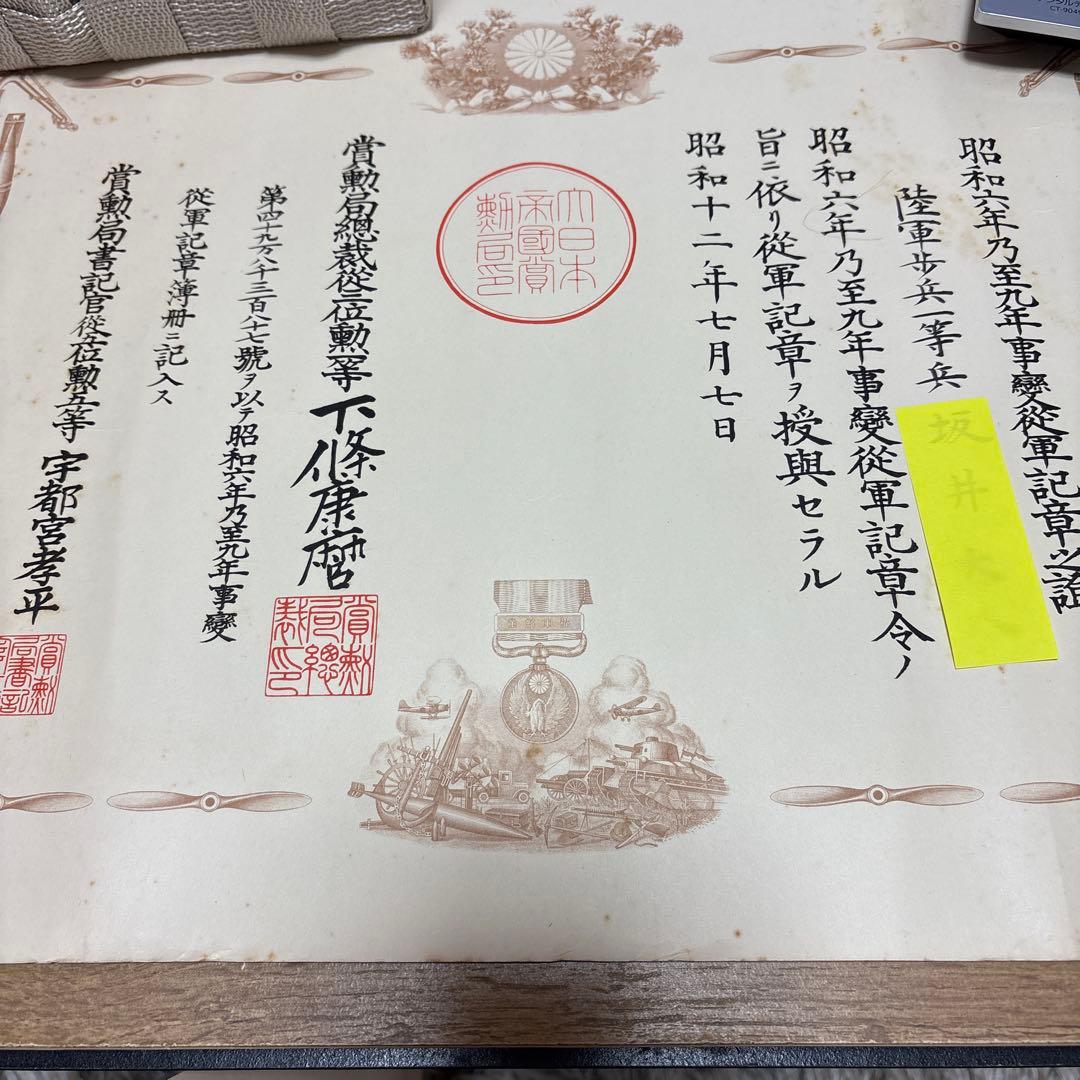 昭和六年乃至九年事變從軍記章之證
陸軍步兵一等兵 坂井
昭和六年乃至九年事變從軍記章令ノ
旨ニ依リ從軍記章ヲ授與セラル
昭和十二年七月七日
大日本
帝國賞
勲局印
賞勲局總裁從三位勲一等下條康麿
賞勲局總裁印
第四十九万八千三百八十七號ヲ以テ昭和六年乃至九年事變
從軍記章簿册ニ記入ス
賞勲局書記官從五位勲五等宇都宮孝平
從軍記章
CT-9049